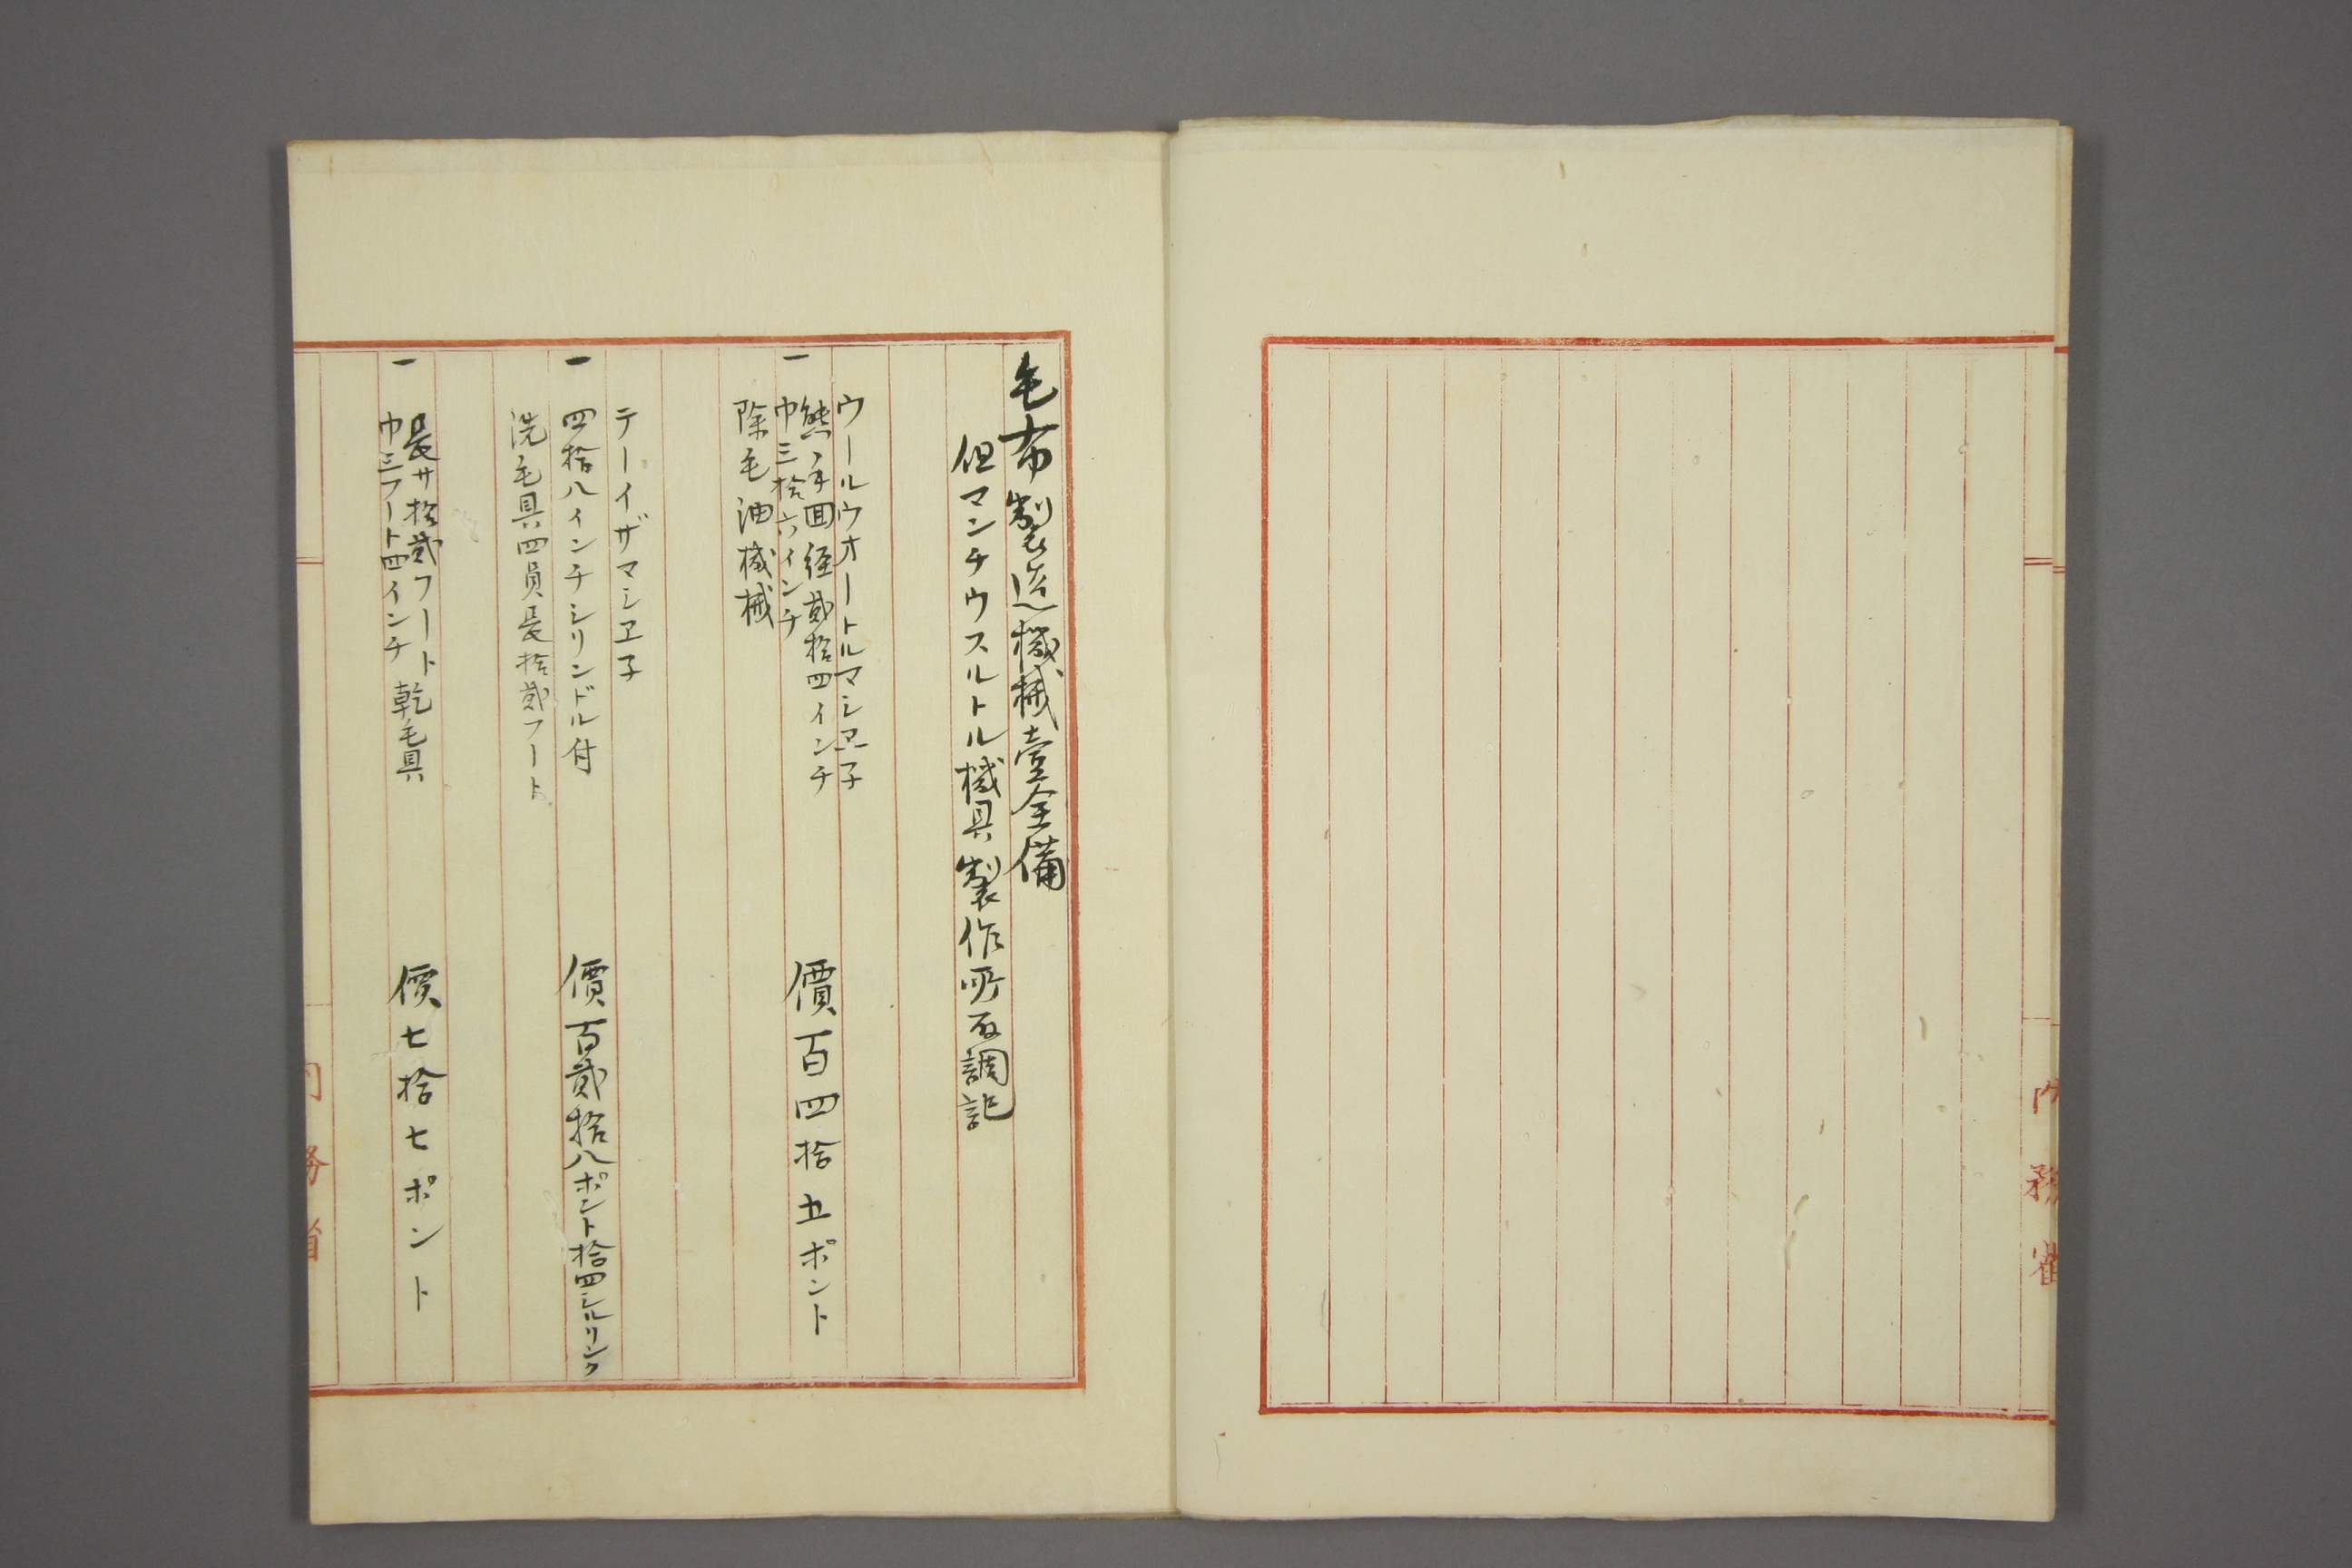 内務省
毛布製造機械壹全備
但マンチウスルトル機具製作所取調記
ウールウオートルマシヱ子
一 熊手囬経貳拾四インチ
巾三拾六インチ
除毛油機械
價百四拾五ポント
テーイザマシヱ子
一 四拾八インチシリンドル付
洗毛具四員長拾貳フート
價百貳拾八ポント拾四シルリンク
一 長サ拾貳フート
巾三フート四インチ
乾毛具
價七拾七ポント
内務省